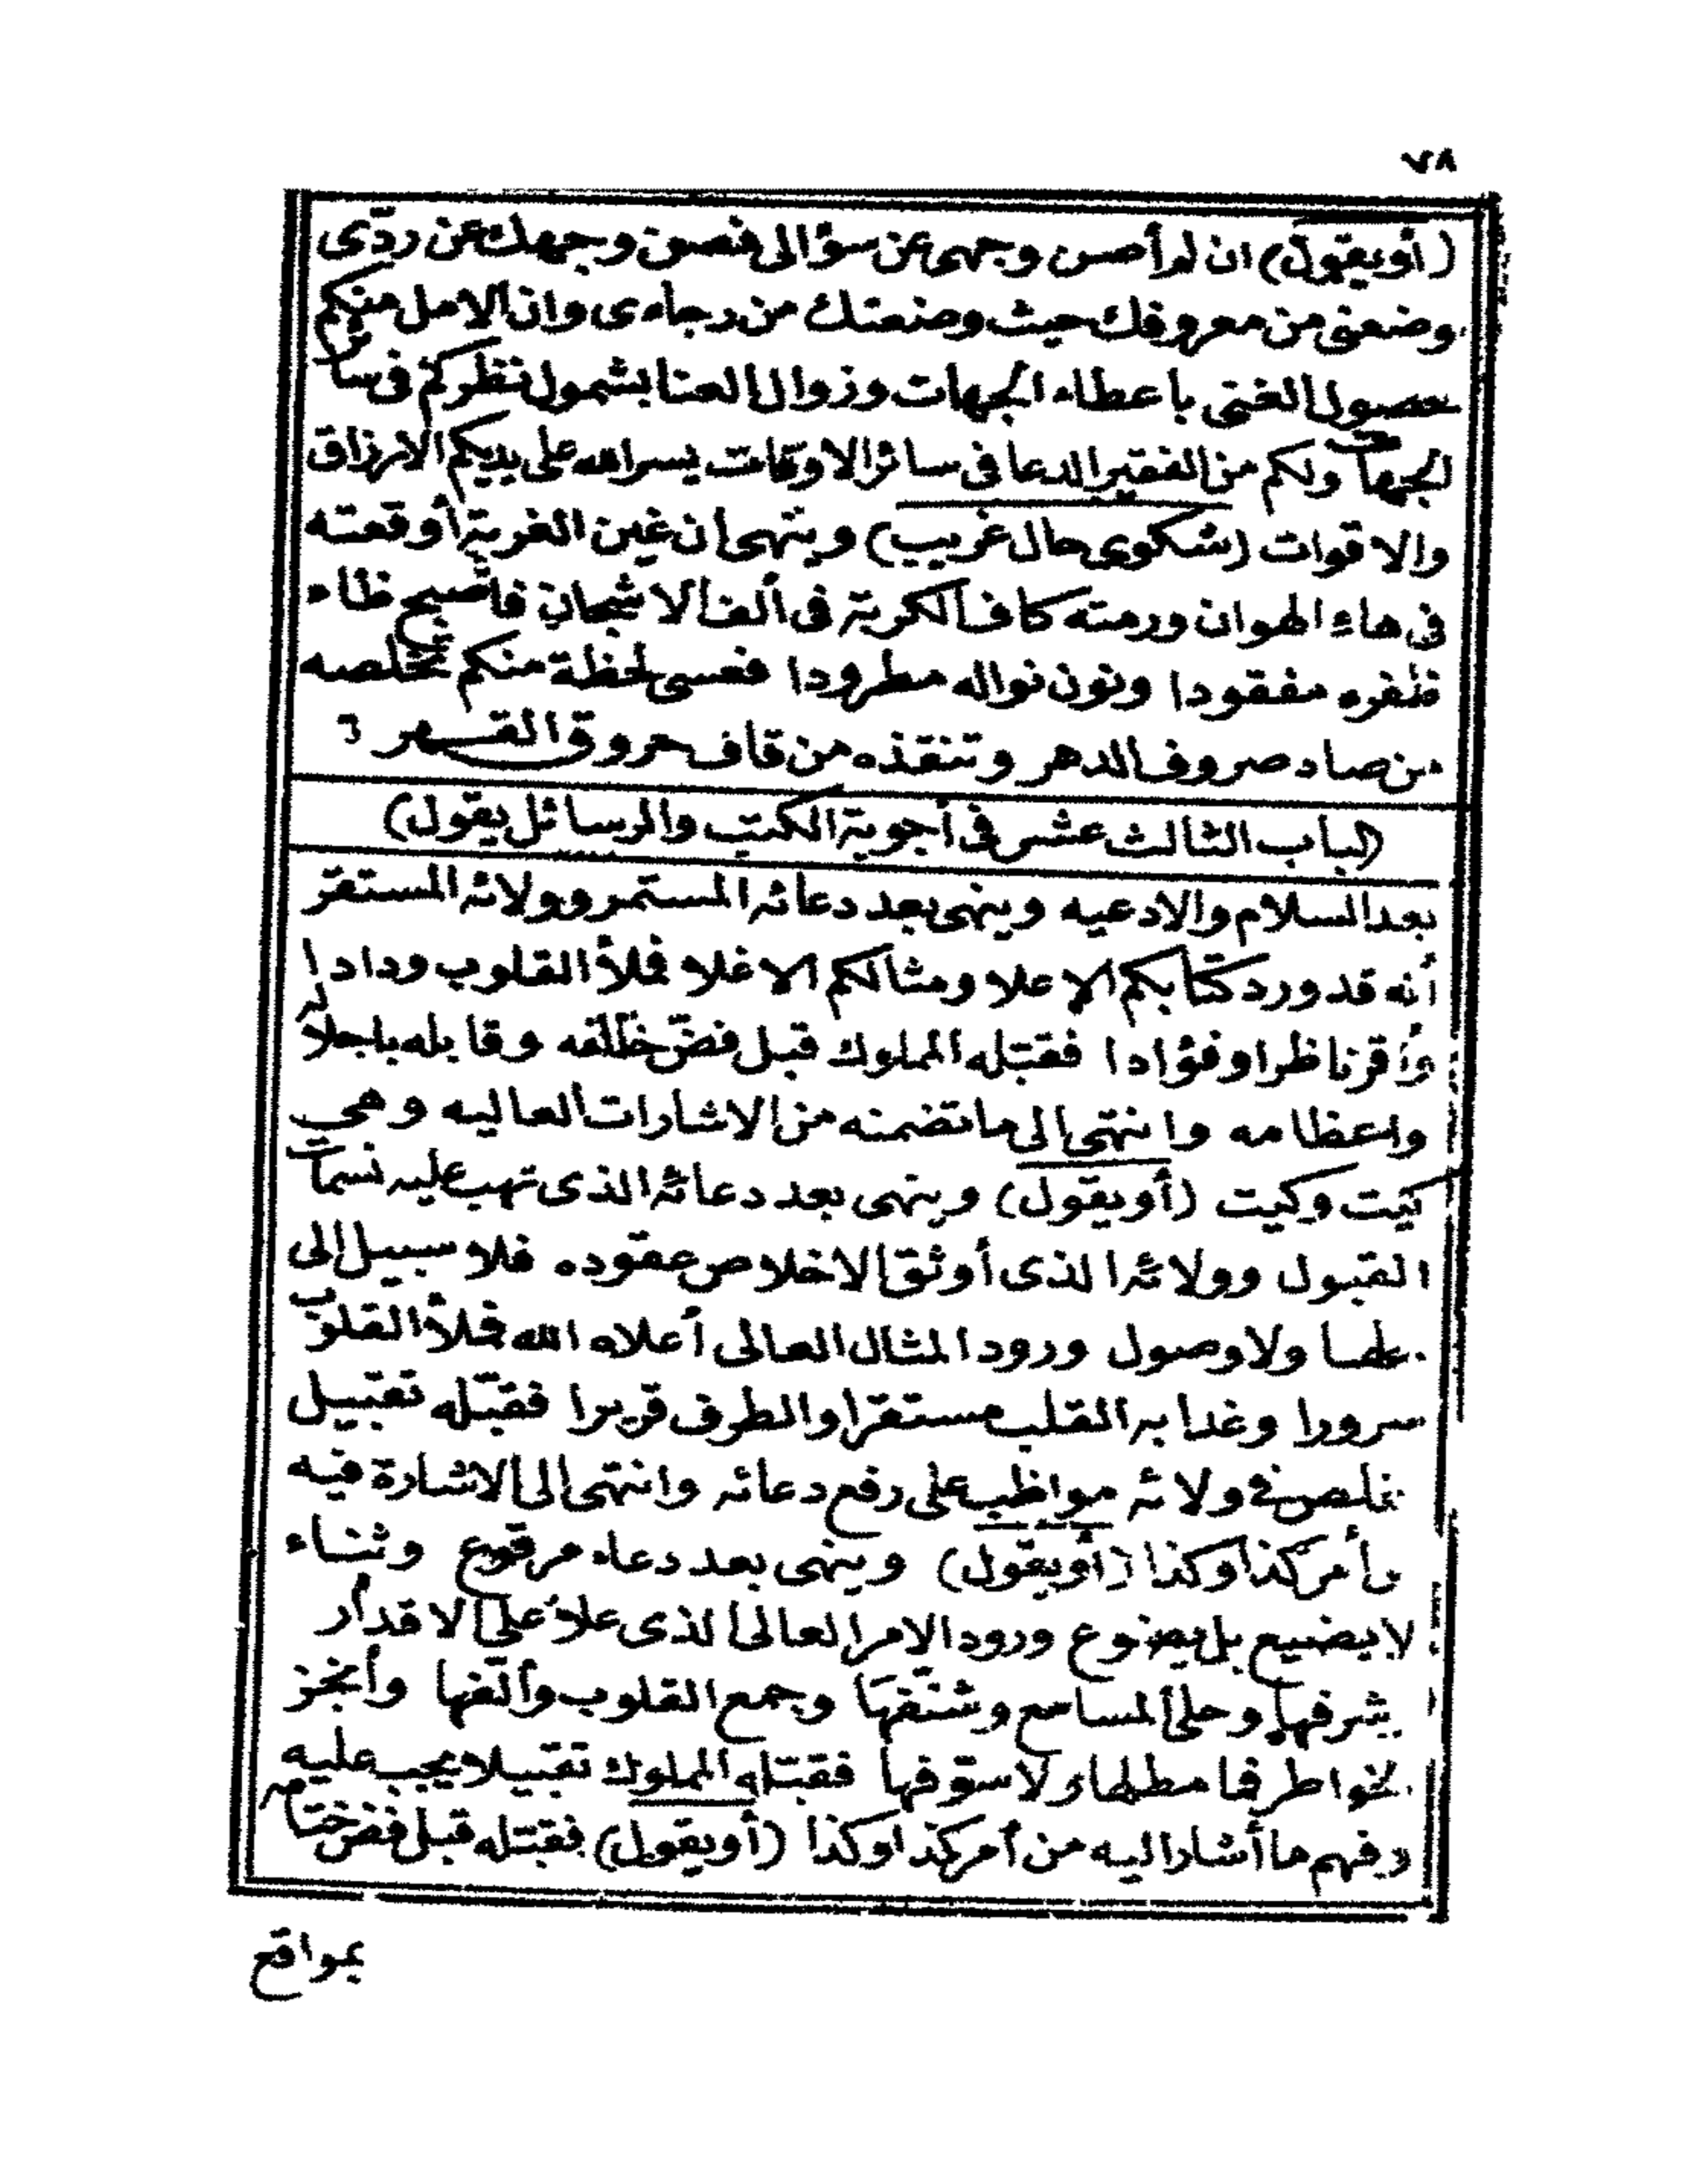 ٧٨
(أو يقول) ان لم أصن وجهى عن سؤالى فصن وجهك عن ردّى
وضعنى من معروفك حيث وضعتك من رجاءى وان الامل منكم
حصول الغنى باعطاء الجهات وزوال العنا بشمول نظركم فى سائر
الجهات ولكم من الفقير الدعا فى سائر الاوقات يسر الله على يديكم الارزاق
والاقوات (شكوى حال غريب) وينهى ان غين الغربة أوقعته
فى هاء الهوان ورمته كاف الكربة فى ألف الاشجان فأصبح ظاء
ظفره مفقودا ونون نواله مطرودا فعسى لحظة منكم تخلصه
من صاد صروف الدهر وتنقذه من قاف حروق القهر
(الباب الثالث عشر فى أجوبة الكتب والرسائل يقول)
بعد السلام والادعيه وينهى بعد دعائه المستمر وولائه المستقر
أنه قد ورد كتابكم الاعلا ومثالكم الاغلا فملأ القلوب ودادا
وأقر ناظرا وفؤادا فقبّله المملوك قبل فضّ ختامه وقابله باجلاله
واعظامه وانتهى الى ما تضمنه من الاشارات العاليه وهى
كيت وكيت (أو يقول) وينهى بعد دعائه الذى تهب عليه نسمات
القبول وولائه الذى أوثق الاخلاص عقوده فلا سبيل الى
ولا وصول ورود المثال العالى أعلاه الله فملأ القلوب
سرورا وغدا به القلب مستقرا والطرف قريرا فقبّله تقبيل
مخلص فى ولائه مواظب على رفع دعائه وانتهى الى الاشارة فيه
من أمر كذا وكذا (أو يقول) وينهى بعد دعاء مرفوع وثناء
لا يضيع بل يضوع ورود الامر العالى الذى علا على الاقدار
بشرفها وحلى المسامع وشنّفها وجمع القلوب وألّفها وأنجز
الخواطر فما مطلها ولا سوّفها فقبّله المملوك تقبيلا يجب عليه
وفهم ما أشار اليه من أمر كذا وكذا (أو يقول) فقبّله قبل فض ختامه
بمواقع